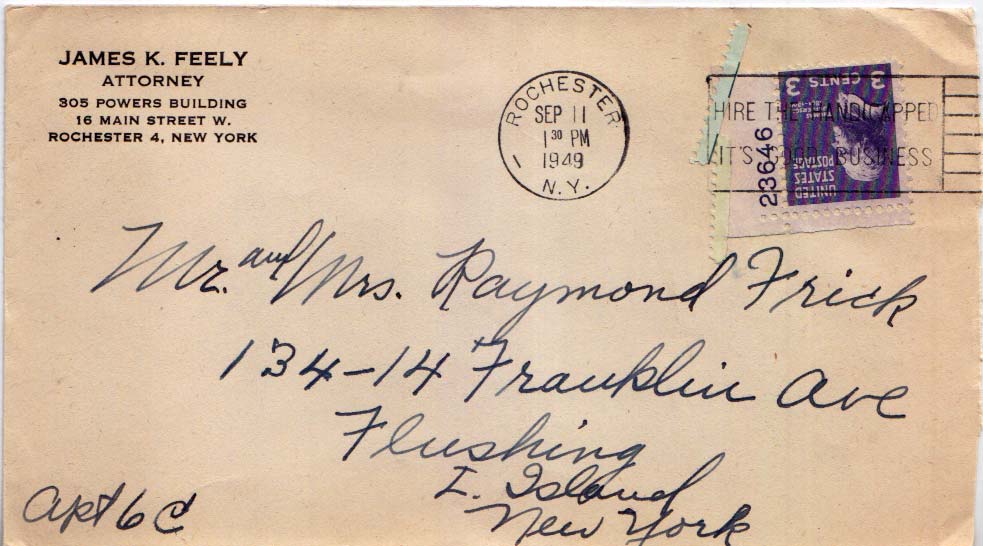 JAMES K. FEELY
ATTORNEY
305 POWERS BUILDING
16 MAIN STREET W.
ROCHESTER 4, NEW YORK
ROCHESTER
SEP 11
1 30 PM
1949
N.Y.
1
HIRE THE HANDICAPPED
IT'S GOOD BUSINESS
3 CENTS 3
UNITED
STATES
POSTAGE
23646
Mr. and Mrs. Raymond Frick
134-14 Franklin Ave
Flushing
L. Island
New York
Apt 6C